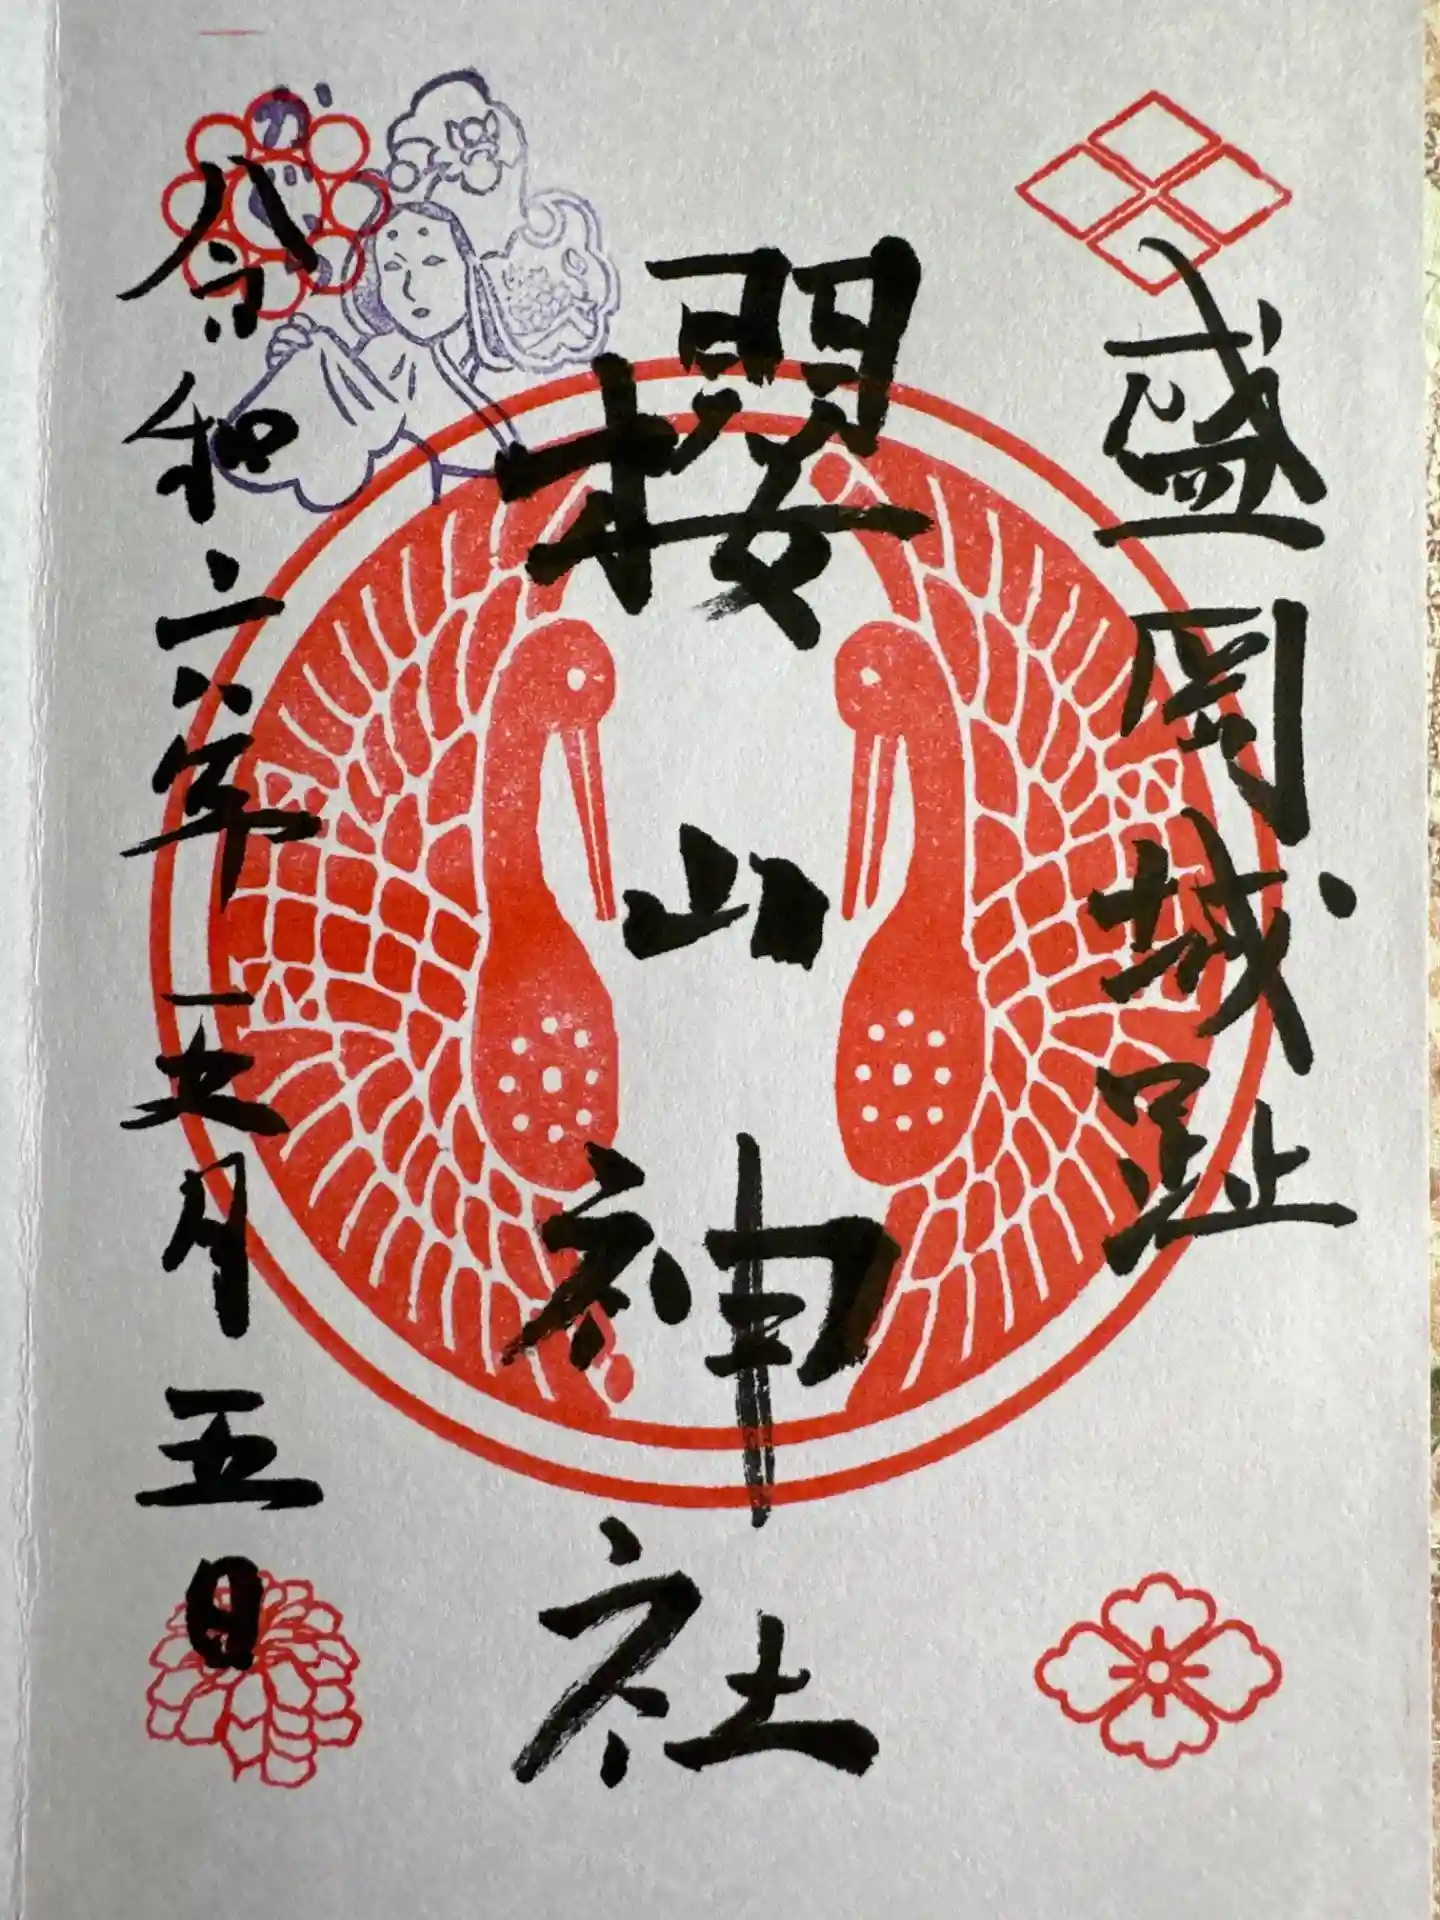 盛岡城趾
櫻山神社
令和六年五月五日